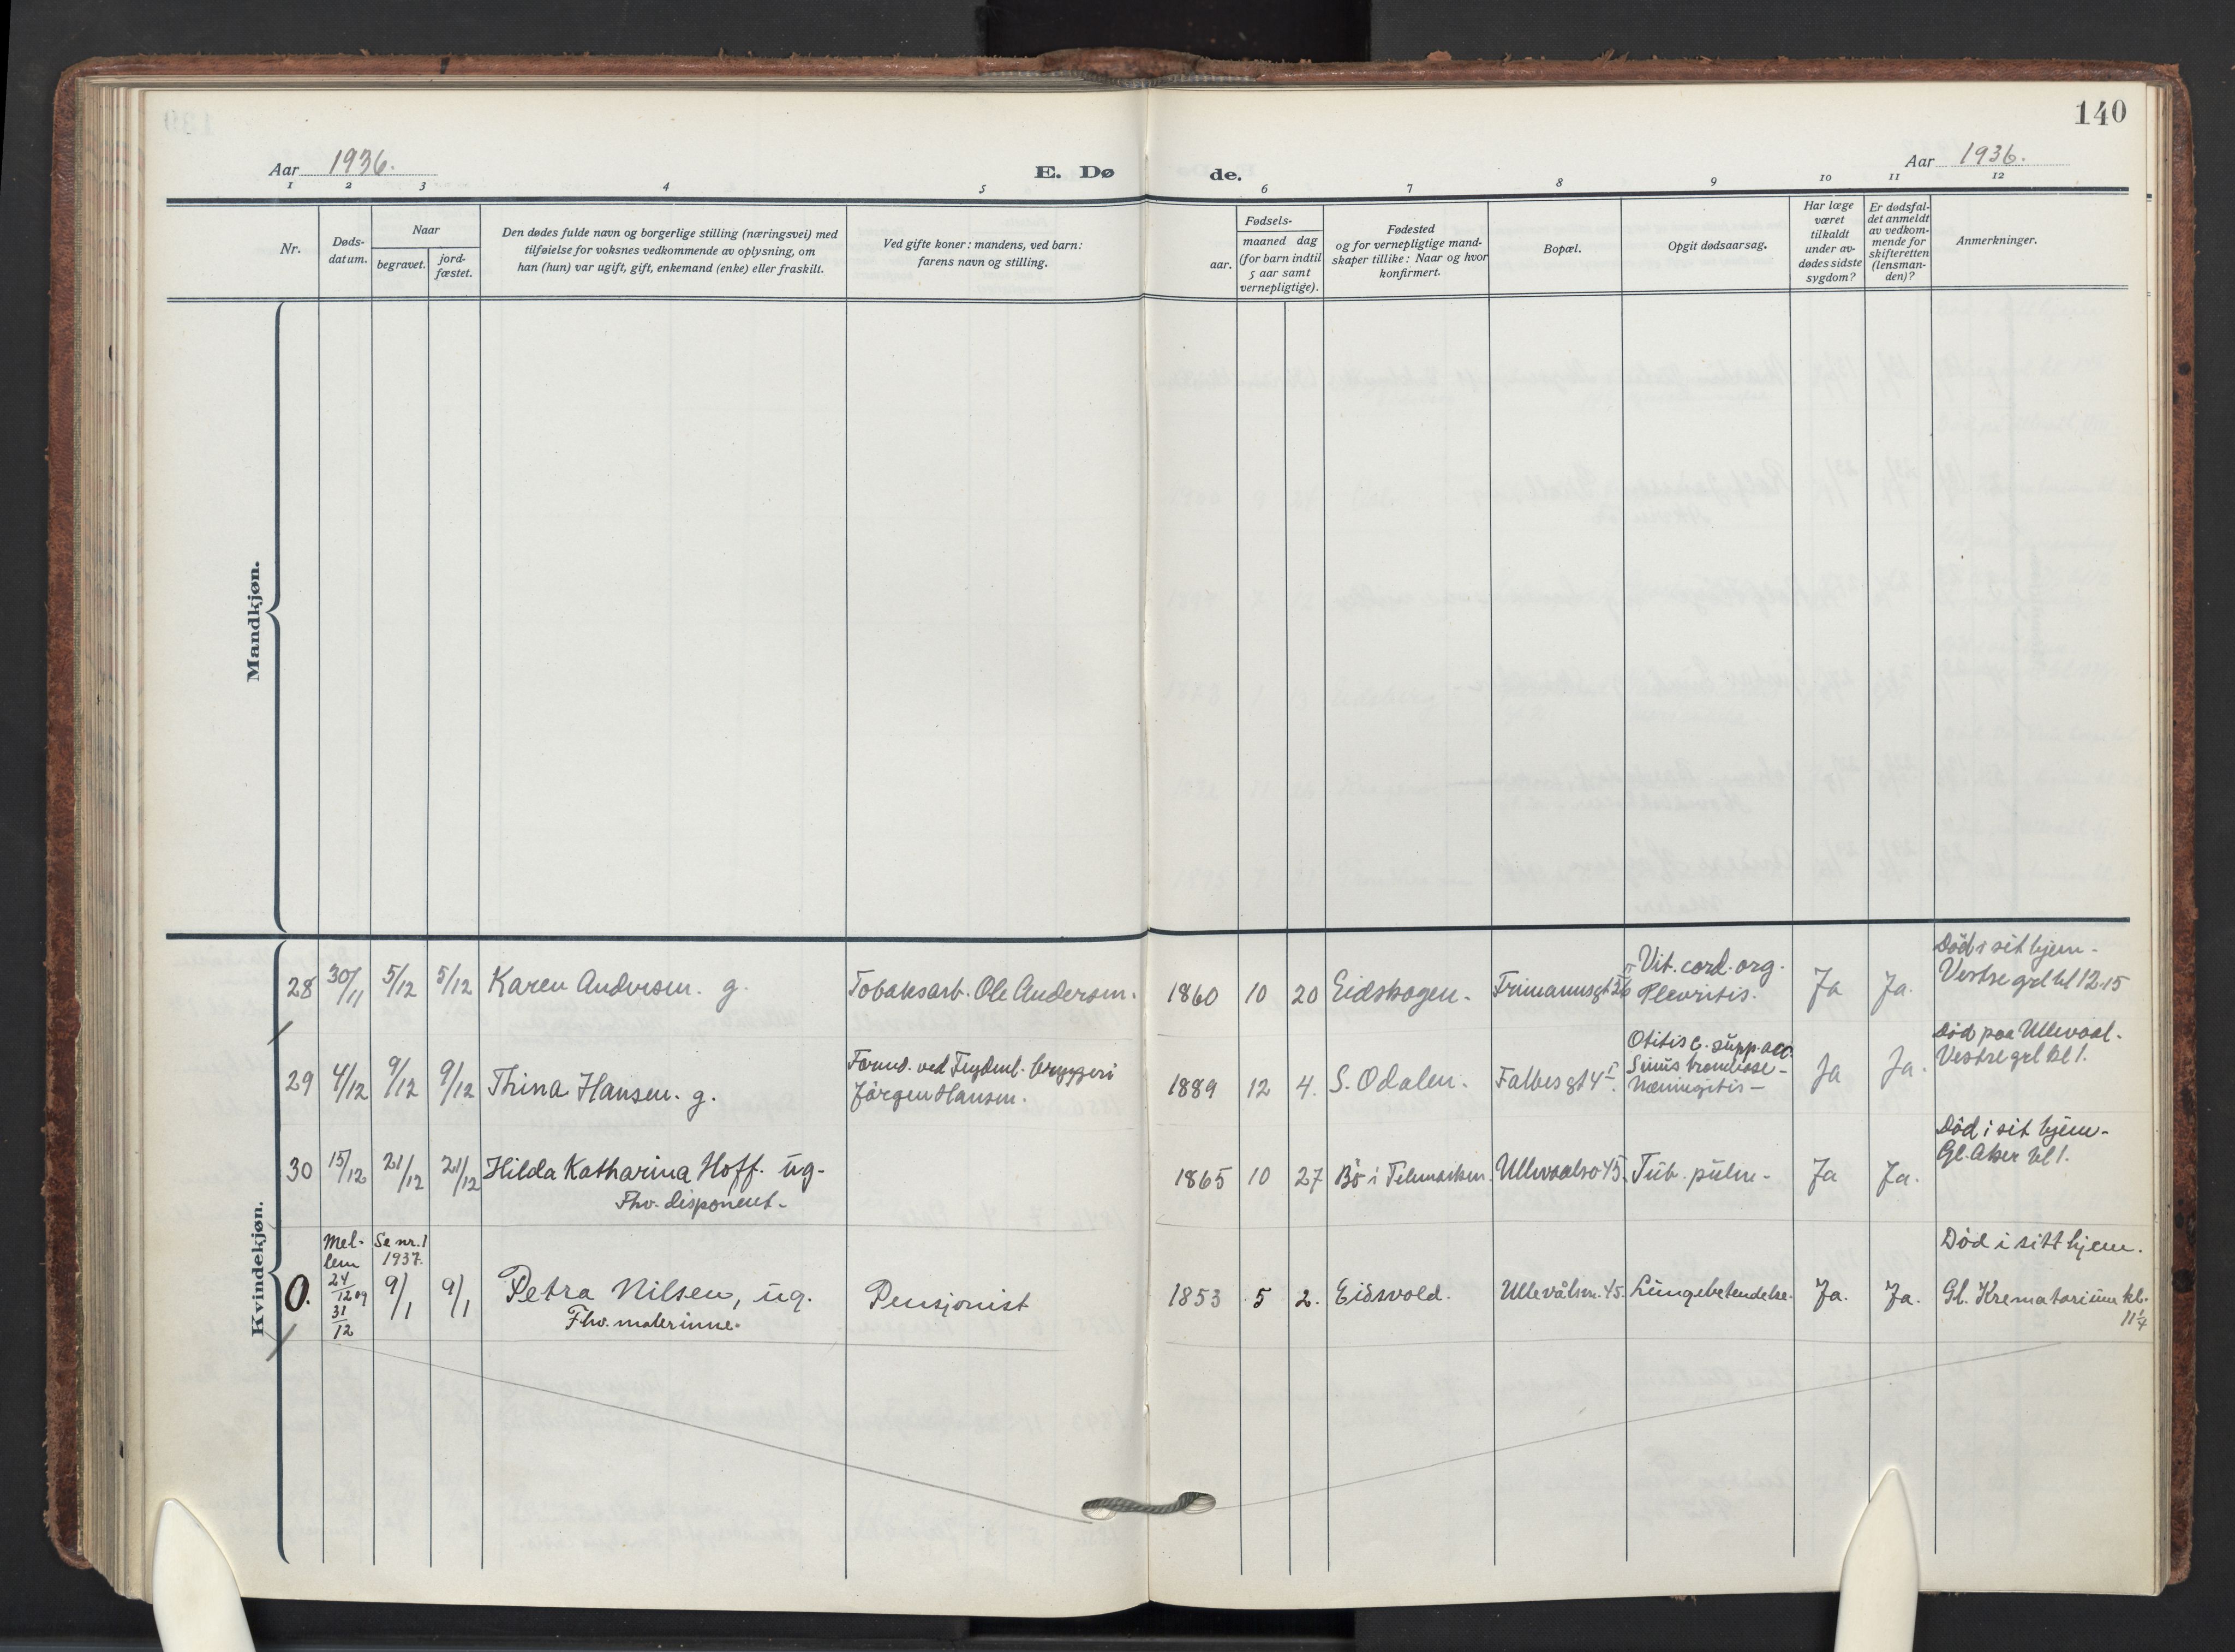 140
Aar 1936.
E. Dø de.
Aar 1936.
1 2 3 4 5 6 7 8 9 10 11 12
Nr.
Døds-
datum.
Naar
begravet.
jord-
fæstet.
Den dødes fulde navn og borgerlige stilling (næringsvei) med
tilføielse for voksnes vedkommende av oplysning, om
han (hun) var ugift, gift, enkemand (enke) eller fraskilt.
Ved gifte koner: mandens, ved barn:
farens navn og stilling.
Fødsels-
aar.
maaned dag
(for barn indtil
5 aar samt
vernepligtige).
Fødested
og for vernepligtige mand-
skaper tillike: Naar og hvor
konfirmert.
Bopæl.
Opgit dødsaarsag.
Har læge
været
tilkaldt
under av-
dødes sidste
sygdom?
Er dødsfal-
det anmeldt
av vedkom-
mende for
skifteretten
(lensman-
den)?
Anmerkninger.
Mandkjøn.
Kvindekjøn.
28 30/11 5/12 5/12 Karen Andersen. g. Tobaksarb. Ole Andersen. 1860 10 20 Eidskogen. Frimannsgt 26 Vit. cord. org.
Plevritis. Ja Ja. Død i sit hjem.
Vestre grl kl 12.15
29 4/12 9/12 9/12 Thina Hansen. g. Formd. ved Frydenl. bryggeri
Jørgen Hansen. 1889 12 4. S. Odalen. Falbesgt 4 I. Otitis c. supp. acc.
Sinus trombose-
Meningitis- Ja Ja. Død paa Ullevaal.
Vestre grl kl 1.
30 15/12 21/12 21/12 Hilda Katharina Hoff. ug.
Fhv. disponent. 1865 10 27 Bø i Telemarken. Ullevaalsv 45. Tub. pulm. Ja Ja. Død i sit hjem.
Gl. Aker kl 1.
0. Mel-
lem
24/12 og
31/12 Se nr. 1
1937.
9/1 9/1 Petra Nilsen, ug.
Fhv. malerinne. Pensjonist 1853 5 2. Eidsvold. Ullevålsv. 45. Lungebetendelse. Ja. Ja. Død i sitt hjem.
Gl. Krematorium kl.
11 1/4